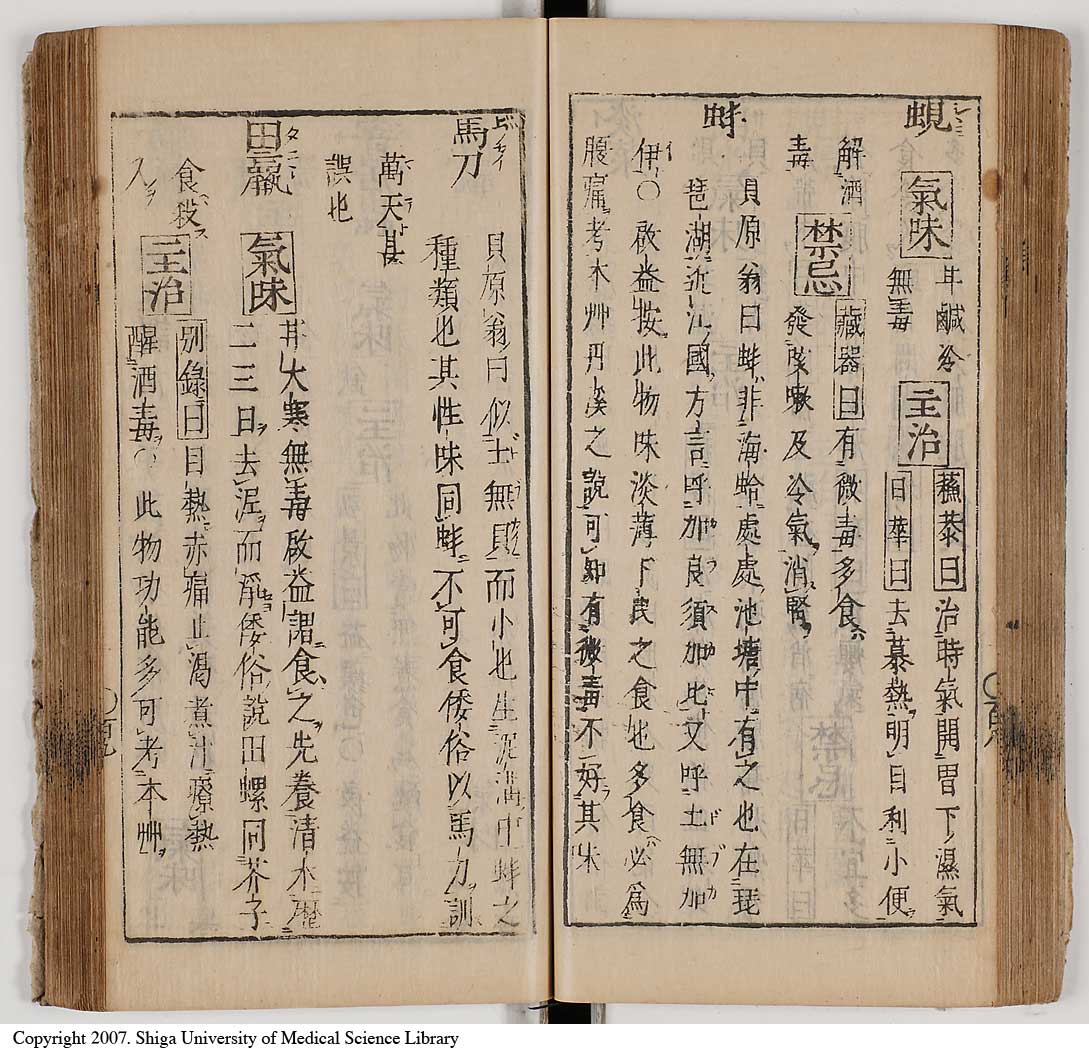 蜆
氣味 甘鹹冷無毒 主治 蘓恭曰治時氣開胃下濕氣
日華曰去暴熱明目利小便
解酒毒 禁忌 藏器曰有微毒多食
發咳嗽及冷氣消腎
蚌
貝原翁曰蚌非海蛤處處池塘中有之也在琵
琶湖近江國方言呼加良須加比又呼土無加
伊○啟益按此物味淡薄下民之食也多食必為
腹痛考本艸丹溪之說可知有微毒不好其味
馬刀
貝原翁曰似土無貝而小也生泥溝中蚌之
種類也其性味同蚌不可食倭俗以馬刀訓
萬天甚
誤也
田蠃
氣味 甘大寒無毒啟益謂食之先養清水歷
二三日去泥而 倭俗說田螺同芥子
食殺
人
主治 別錄曰目熱赤痛止渴煮汁療熱
醒酒毒○此物功能多可考本艸
Copyright 2007. Shiga University of Medical Science Library